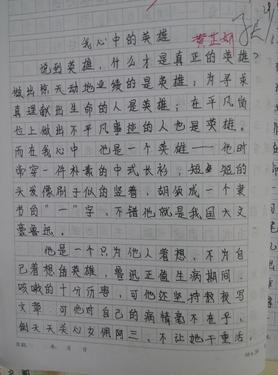 我心中的英雄
说到英雄，什么才是真正的英雄？
做出惊天动地业绩的是英雄；为寻求
真理献出生命的人是英雄；在平凡岗
位上做出不平凡事迹的人也是英雄。
而在我心中，他是一个英雄——他时
常穿一件朴素的中式长衫，短短的
头发像刷子似的竖着，胡须成一个隶
书的“一”字，不错他就是我国大文
豪鲁迅。
他是一个只为他人着想，不为自
己着想的英雄，鲁迅正值生病期间，
咳嗽的十分厉害，可他还坚持熬夜写
文章，可他对自己的病情毫不在乎，
倒天天关心女佣阿三，不让她干重活，